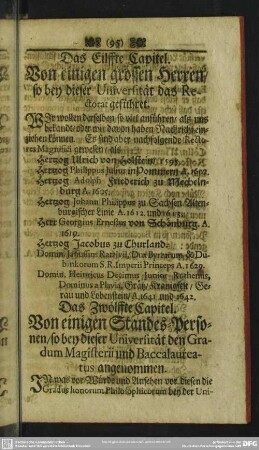 (95)
Das Eilffte Capitel.
Von einigen grossen Herren/
so bey dieser Universität das Re-
ctorat geführet.
WIr wollen derselben so viel anführen/ als uns
bekandt/ oder wir davon haben Nachricht ein-
ziehen können. Es sind aber nachfolgende Recto-
res Magnifici gewesen/ als:
Hertzog Ulrich von Holstein/
Hertzog Philippus Julius in Pommern A.
Hertzog Adolph Friederich zu Mecheln-
burg A.
Hertzog Johann Philippus zu Sachsen Alten-
burgischer Linie A. 1612. und
Herr Georgius Ernestus von Schönburg, A.
1619.
Hertzog Jacobus zu Churland.
Domin. Radzivil, Dux Birzarum, &
Dubinkorum S. R. Imperii Princeps A. 1629.
Domin. Heinricus Dominus Junior Ruthenus,
Dominus a Plavia, Grätz, Kranigfelt, Ge-
rau und Lobenstein/ A. 1641 und 1642.
Das Zwölffte Capitel.
Von einigen Standes-Perso-
nen/ so bey dieser Universität den Gra-
dum Magisterii und Baccalaurea-
tus angenommen.
IN was vor Würde und Ansehen vor diesen die
Gradus honorum Philosophicorum bey der Uni-